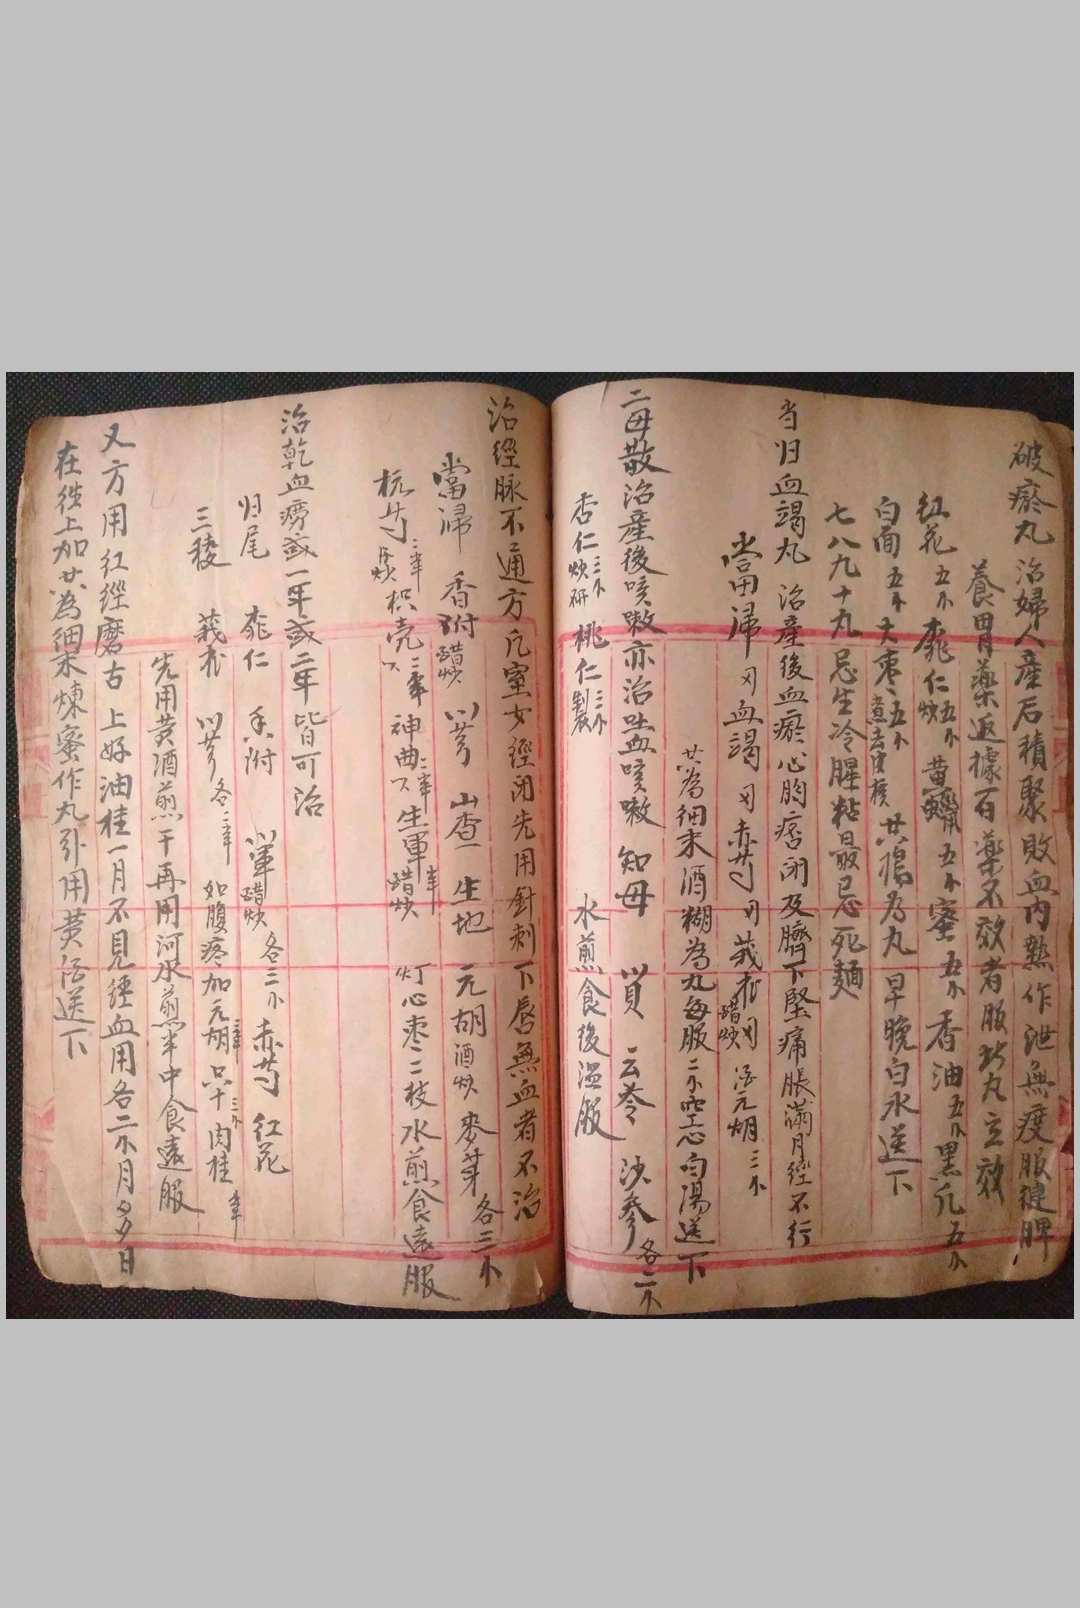 破瘀丸 治婦人產后積聚敗血內熱作泄無度服健脾
養胃藥返據百藥不效者服此丸立效
紅花五小 桃仁炒五小 黃蠟五小 蜜五小 香油五小 黑 五小
白面五小 大枣五小煮去皮核 共搗為丸 早晚白水送下
七八九十丸 忌生冷腥粘最忌死麵
当归血竭丸 治產後血瘀心胸痞闭及臍下堅痛脹滿月經不行
當歸 血竭 赤芍 莪朮 醋炒 元胡三小
共為細末酒糊為丸每服二小空心白湯送下
二母散治產後咳嗽亦治吐血咳嗽 知母 貝 云苓 沙參各二小
杏仁三小炒研 桃仁三小製 水煎食後温服
治經脉不通方凡室女經闭先用針刺下唇無血者不治
當歸 香附醋炒 川芎 山查 生地 元胡酒炒 麥芽各三小
杭芍 炒 枳壳 神曲 生軍醋炒 灯心枣二枝水煎食遠服
治乾血癆或一年或二年皆可治
归尾 桃仁 香附 川軍醋炒各三小 赤芍 紅花
三稜 莪朮 川芎各 如腹疼加元胡 只卜三小 肉桂
先用黃酒煎干再用河水煎半中食遠服
又方用紅經磨古 上好油桂一月不見經血用各二小月多多日
在徃上加共為細末煉蜜作丸引用黃酒送下